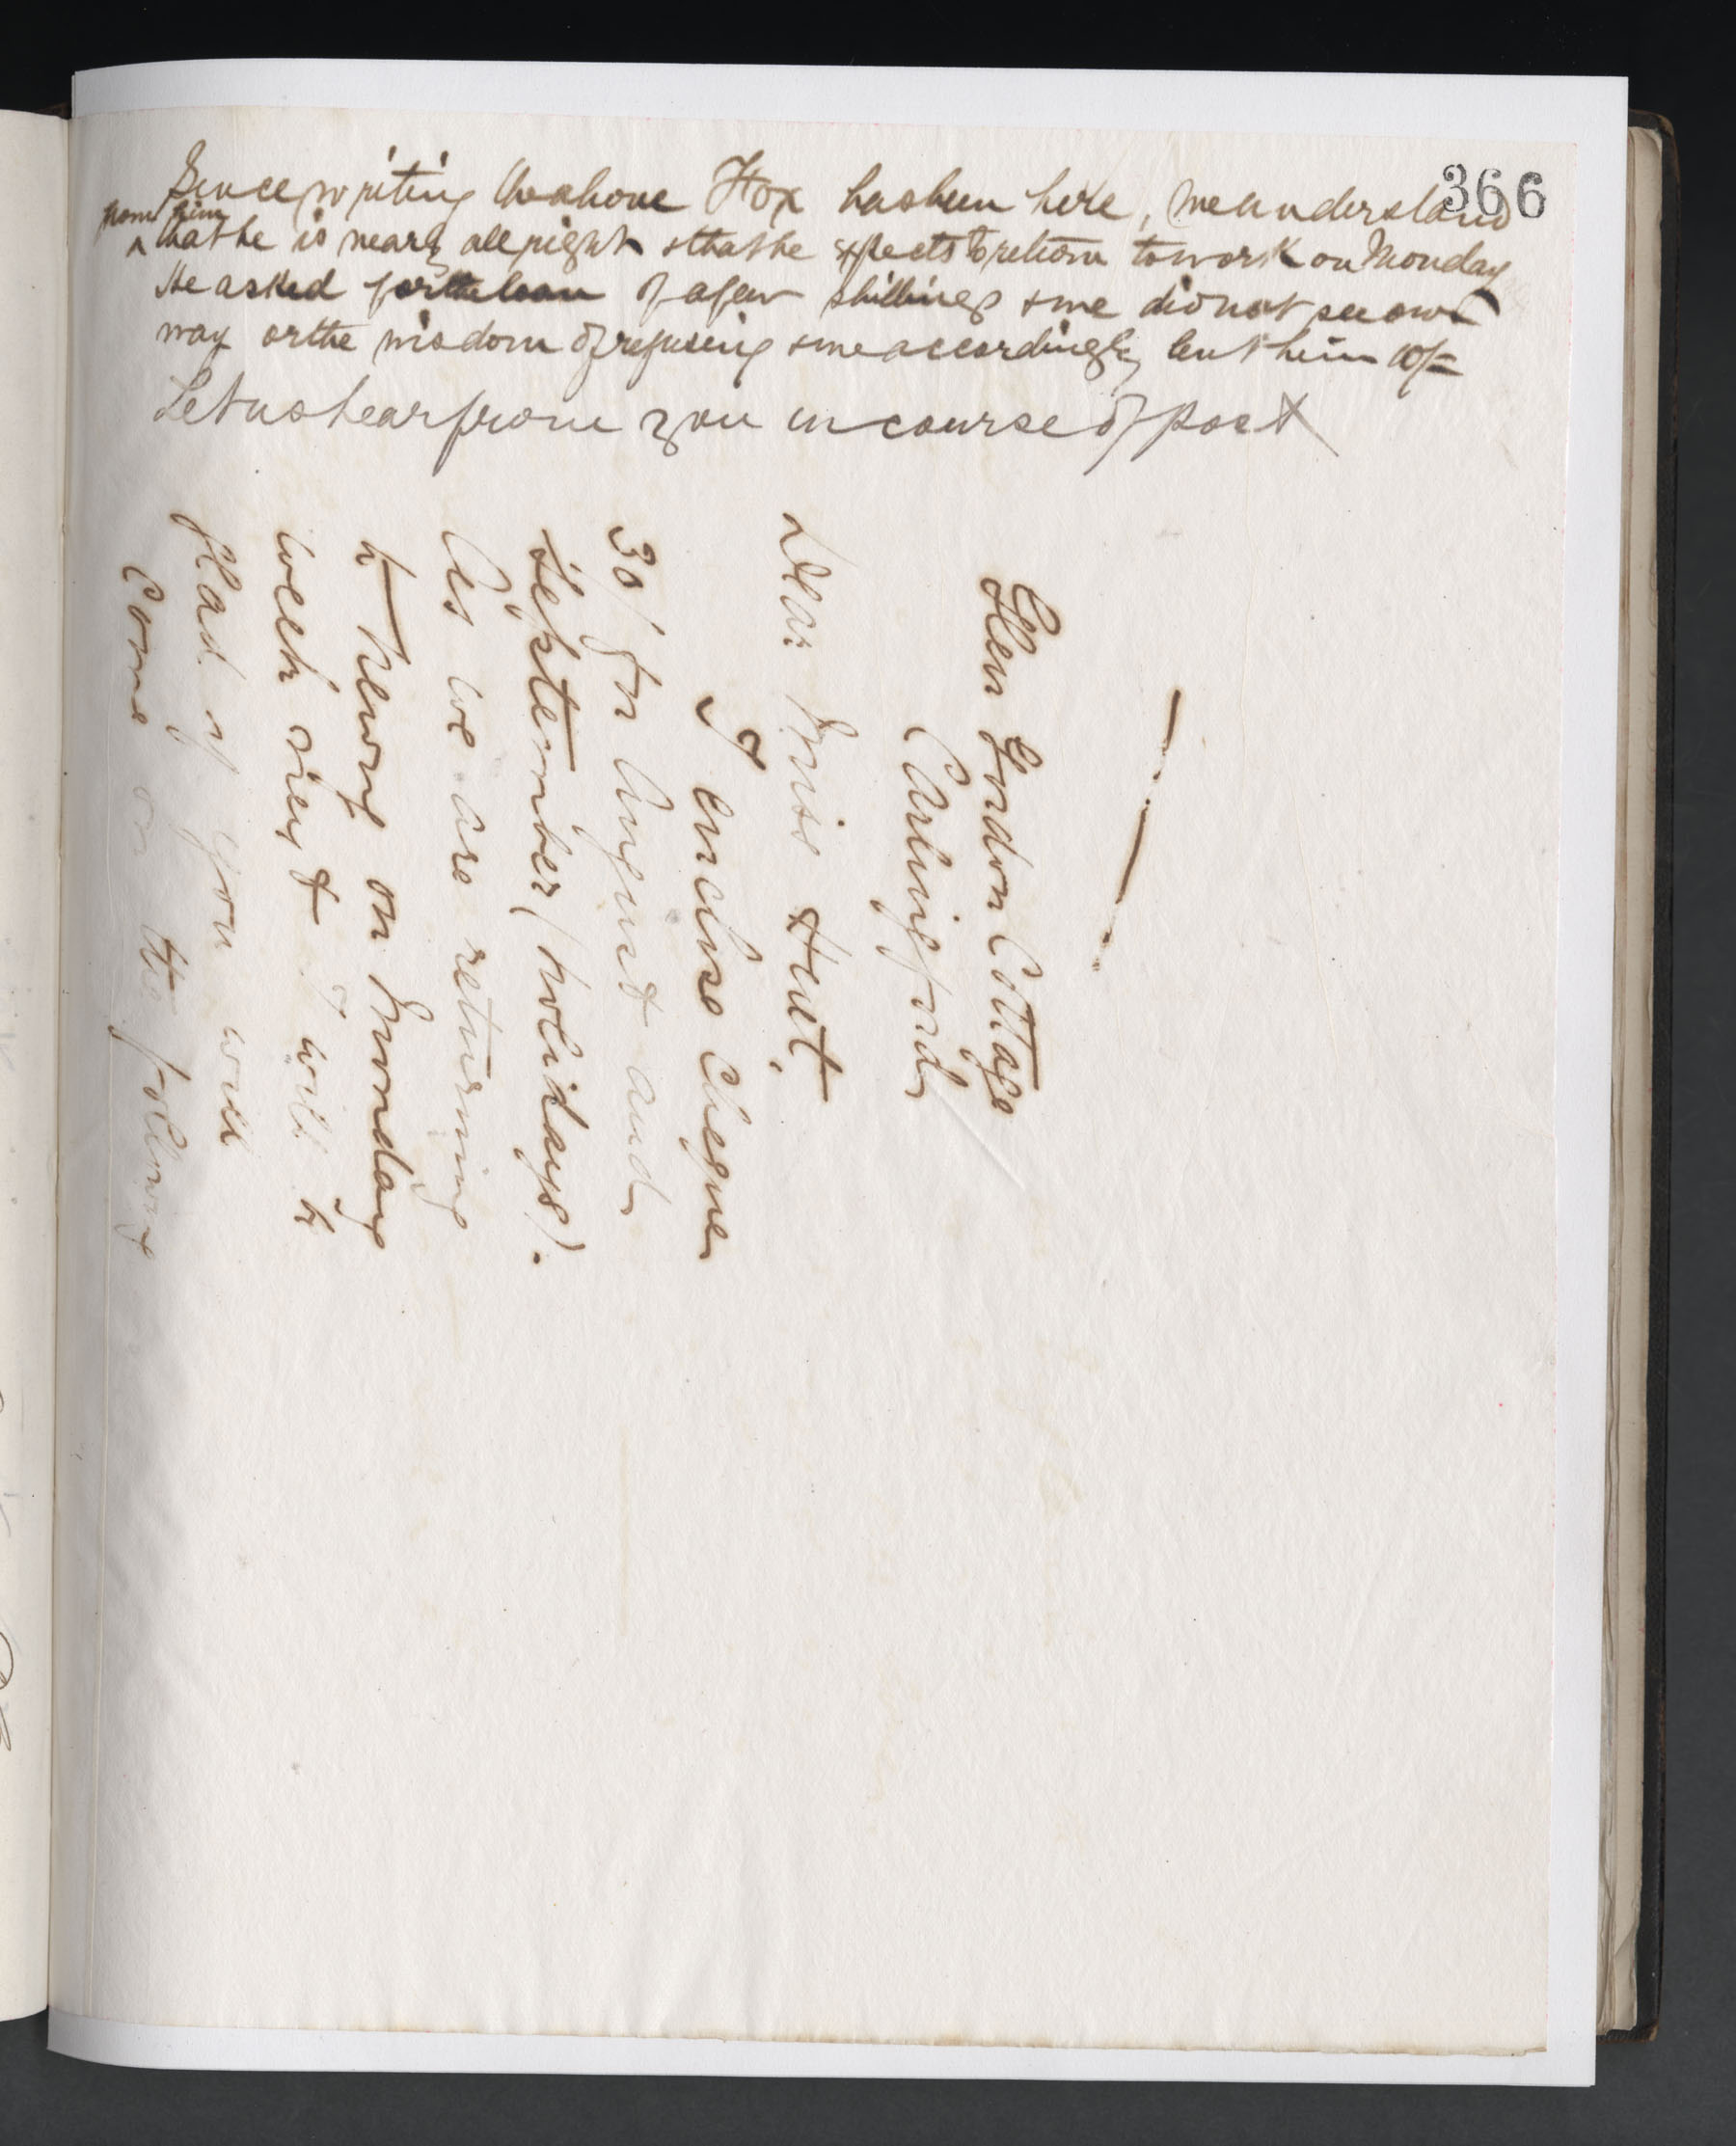 366
Since writing the above Fox has been here, we understand
from him
^ that he is nearly all right & that he expects to return to work on Monday
He asked for the loan of a few shillings & we did not see our
way or the wisdom of refusing & we accordingly lent him 10/=
Let us hear from you in course of post
Glen Gordon Cottage
Carlingford
Dear Miss Hunt,
I enclose Cheque
30/ for August and
September (holidays).
As we are returning
to Newry on Monday
week next I will be
glad if you will
come on the following